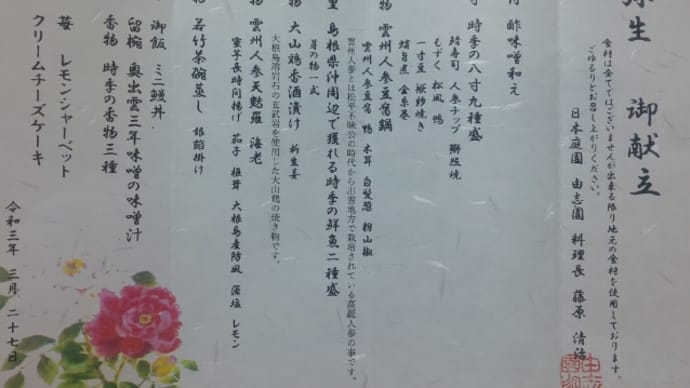 弥生 御献立
食材は全てではございませんが出来る限り地元の食材を使用しております。
ごゆるりとお召し上がりください。
日本庭園 由志園 料理長 藤原 清治
付 酢味噌和え
寸 時季の八寸九種盛
鯖寿司 人参チップ 鰤照焼
もずく 松風 鴨
一寸豆 桜鯛焼き
蛸旨煮 金糸巻
物 雲州人参豆腐鍋
雲州人参豆腐 鴨 木耳 白髪葱 粉山椒
雲州人参とは松平不昧公の時代から出雲地方で栽培されている高麗人参の事です。
里 島根県沖周辺で獲れる時季の鮮魚二種盛
芽の物一式
物 大山鶏香酒漬け 新生姜
大根島溶岩石の玄武岩を使用した大山鶏の焼き物です。
物 雲州人参天麩羅 海老
蜜芋長時間揚げ 茄子 椎茸 大根島産防風 藻塩 レモン
物 若竹茶碗蒸し 銀餡掛け
御飯 ミニ鰻丼
留椀 奥出雲三年味噌の味噌汁
香物 時季の香物三種
苺 レモンシャーベット
クリームチーズケーキ
令和三年 三月 二十七日